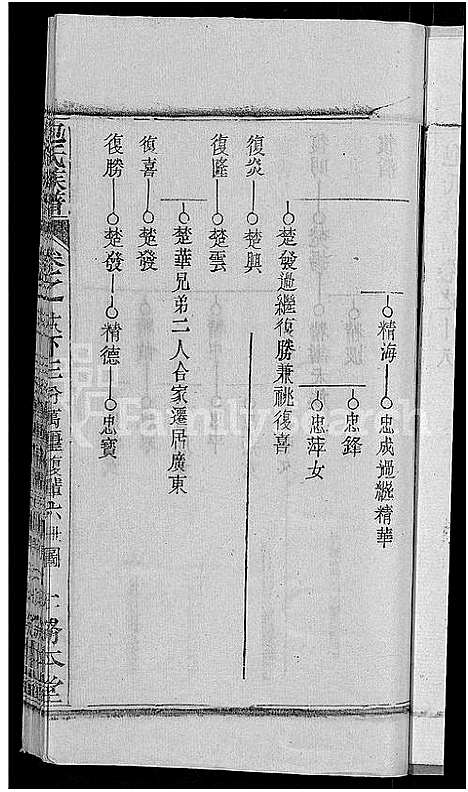 精海 忠成過繼精華
忠鋒
忠萍女
楚發過繼復勝兼祧復喜
復炎 楚興
復隆 楚雲
楚華兄弟二人合家遷居廣東
復喜 楚發
復勝 楚發 精德 忠寶
氏族譜 卷之 六世圖
FamilySearch